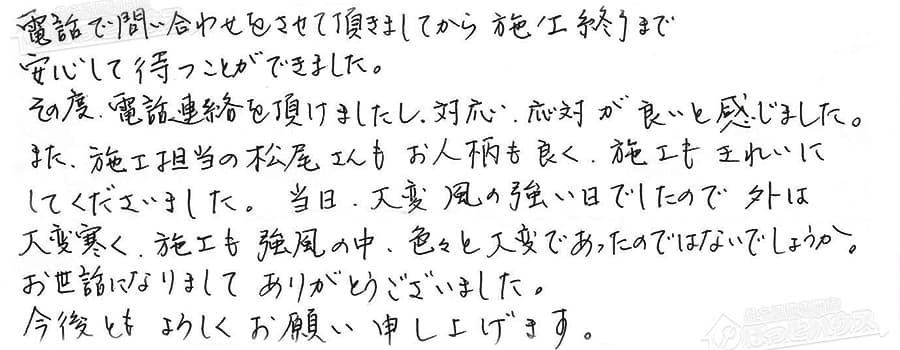 電話で問い合わせをさせて頂きましてから 施工終了まで
安心して待つことができました。
その度、電話連絡を頂けましたし、対応、応対が良いと感じました。
また、施工担当の松尾さんもお人柄も良く、施工もきれいに
してくださいました。当日、大変風の強い日でしたので外は
大変寒く、施工も強風の中、色々と大変であったのではないでしょうか。
お世話になりまして ありがとうございました。
今後とも よろしくお願い申し上げます。